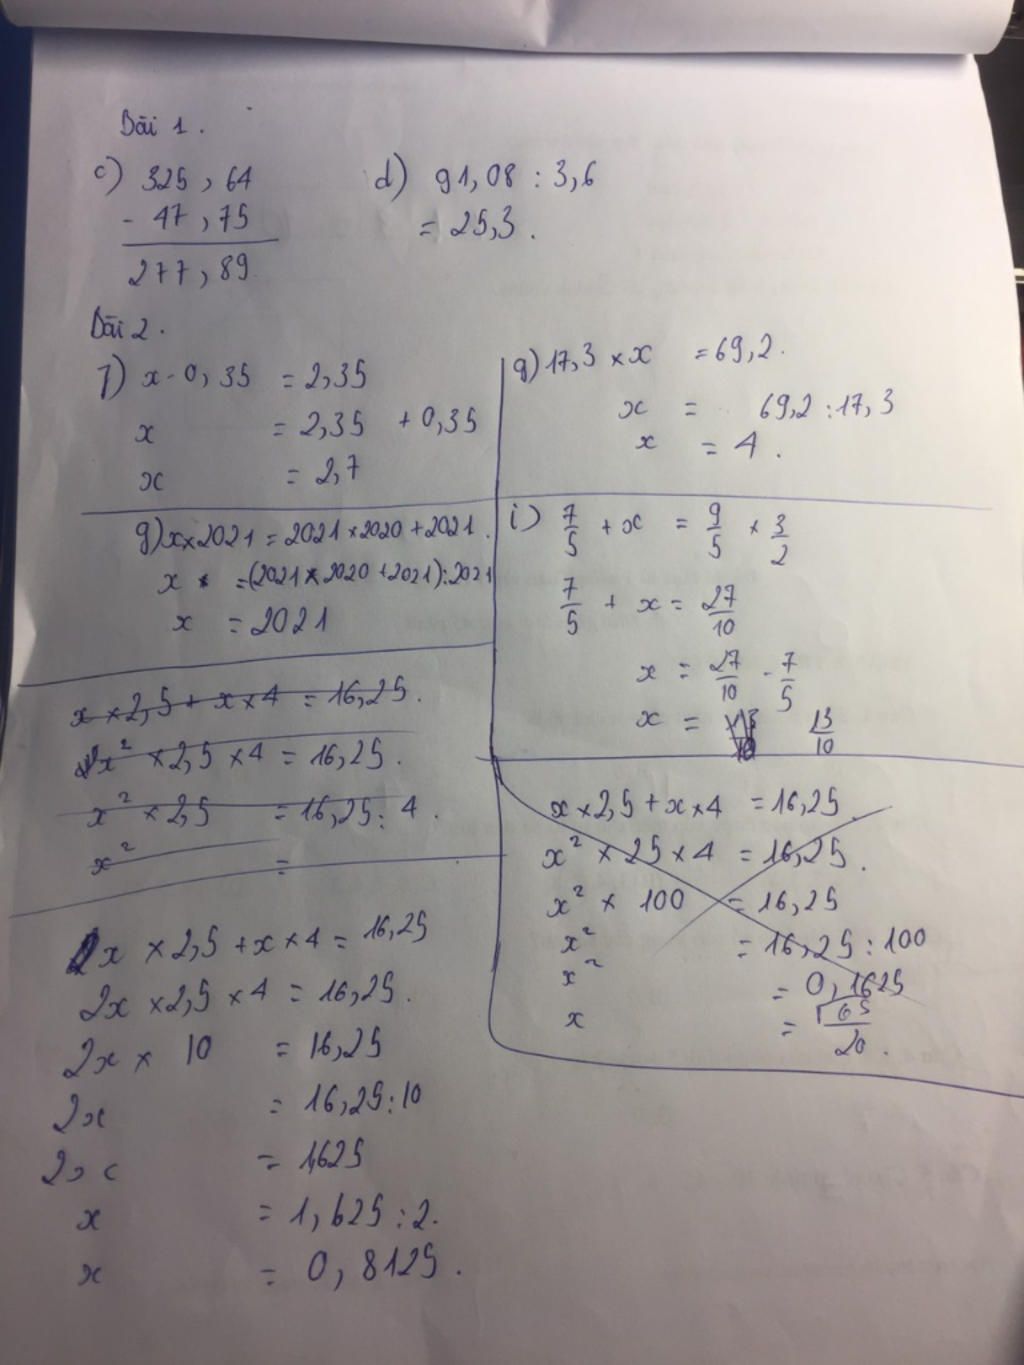 Bài 1.
c) 325,64
- 47,75
277,89
d) 91,08 : 3,6
= 25,3.
Bài 2.
f) x - 0,35 = 2,35
x = 2,35 + 0,35
x = 2,7
q) 17,3 × x = 69,2.
x = 69,2 : 17,3
x = 4.
g) x × 2021 = 2021 × 2020 + 2021.
x = (2021 × 2020 + 2021) : 2021
x = 2021
i) 7/5 + x = 9/5 × 3/2
7/5 + x = 27/10
x = 27/10 - 7/5
x = 13/10
x × 2,5 + x × 4 = 16,25.
x² × 2,5 × 4 = 16,25.
x² × 2,5 = 16,25 : 4.
x² =
x × 2,5 + x × 4 = 16,25
x² × 25 × 4 = 16,25.
x² × 100 = 16,25
x² = 16,25 : 100
x² = 0,1625
x = √65/20.
x × 2,5 + x × 4 = 16,25
2x × 2,5 × 4 = 16,25.
2x × 10 = 16,25
2x = 16,25 : 10
2x = 1,625
x = 1,625 : 2.
x = 0,8125.